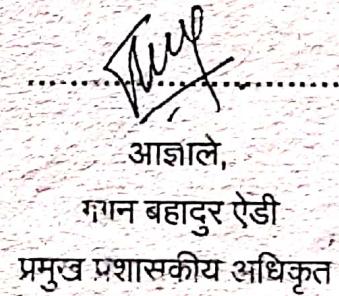 आज्ञाले,
गगन बहादुर ऐडी
प्रमुख प्रशासकीय अधिकृत